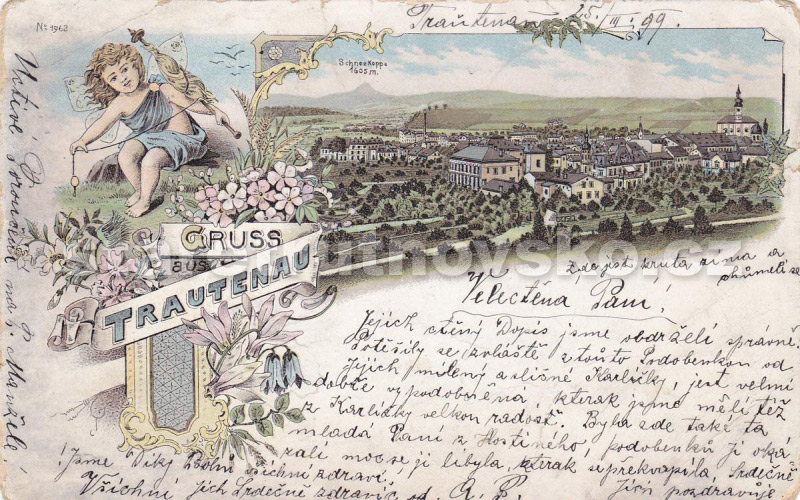 No 1962
Trautenau 25/III 99.
Schneekoppe
1605 m.
GRUSS
aus
TRAUTENAU
trutnovsko.cz
Zde jest krutá zima a
Velectěná Paní!
Jejich ctěný Dopis jsme obdrželi správně.
Potěšily se zvláště z toisto Podobenkou od
Jejich milený a slišné Karličky, jest velmi
dobře vypodobněna, kterak jsme měli též
z Karličky velkou radost. Byla zde také ta
mladá Paní z Hostiného, podobenků ji oká
zali moc se ji libyla, kterak se překvapila Srdečně
Jsme Díky Bohu všichni zdraví.
Jicí pozdravuje
Všichni jich Srdečně zdraví
od A. P.